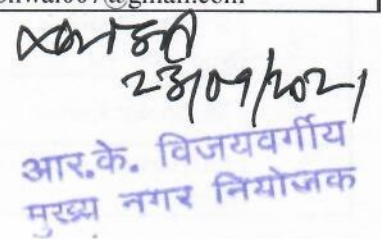 nwal007@gmail.com
23/09/2021
आर.के. विजयवर्गीय
मुख्य नगर नियोजक